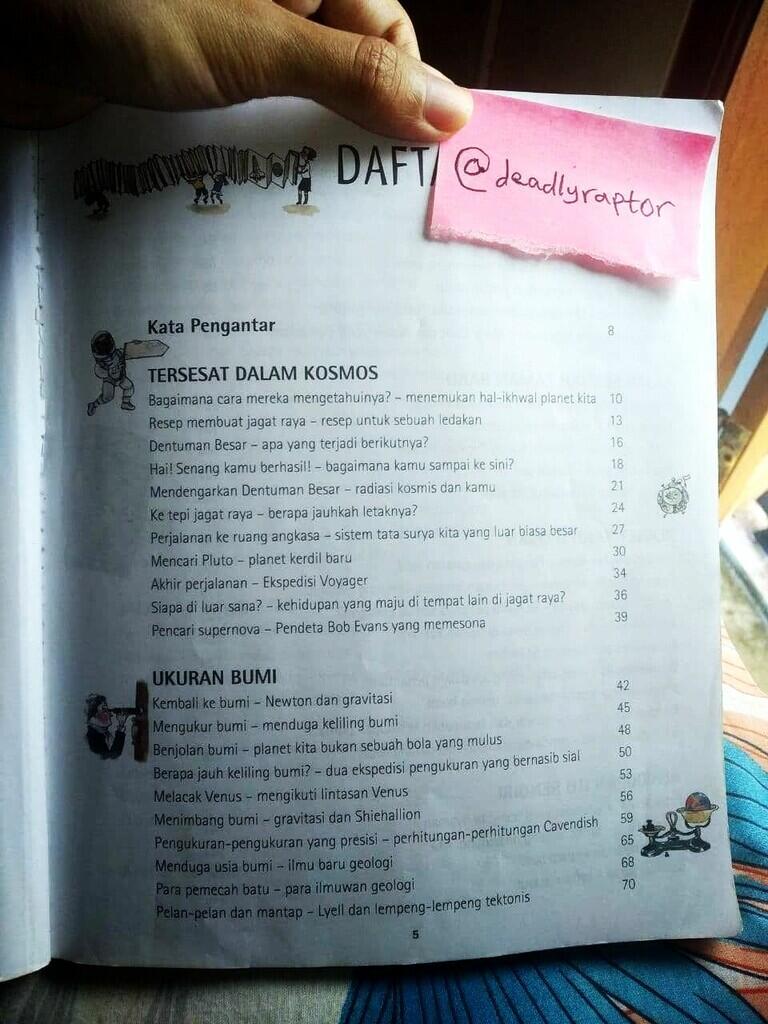 DAFT
@deadlyraptor
Kata Pengantar 8
TERSESAT DALAM KOSMOS
Bagaimana cara mereka mengetahuinya? – menemukan hal-ikhwal planet kita 10
Resep membuat jagat raya – resep untuk sebuah ledakan 13
Dentuman Besar – apa yang terjadi berikutnya? 16
Hai! Senang kamu berhasil! – bagaimana kamu sampai ke sini? 18
Mendengarkan Dentuman Besar – radiasi kosmis dan kamu 21
Ke tepi jagat raya – berapa jauhkah letaknya? 24
Perjalanan ke ruang angkasa – sistem tata surya kita yang luar biasa besar 27
Mencari Pluto – planet kerdil baru 30
Akhir perjalanan – Ekspedisi Voyager 34
Siapa di luar sana? – kehidupan yang maju di tempat lain di jagat raya? 36
Pencari supernova – Pendeta Bob Evans yang memesona 39
UKURAN BUMI
Kembali ke bumi – Newton dan gravitasi 42
Mengukur bumi – menduga keliling bumi 45
Benjolan bumi – planet kita bukan sebuah bola yang mulus 48
Berapa jauh keliling bumi? – dua ekspedisi pengukuran yang bernasib sial 50
Melacak Venus – mengikuti lintasan Venus 53
Menimbang bumi – gravitasi dan Shiehallion 56
Pengukuran-pengukuran yang presisi – perhitungan-perhitungan Cavendish 59
Menduga usia bumi – ilmu baru geologi 65
Para pemecah batu – para ilmuwan geologi 68
Pelan-pelan dan mantap – Lyell dan lempeng-lempeng tektonis 70
5